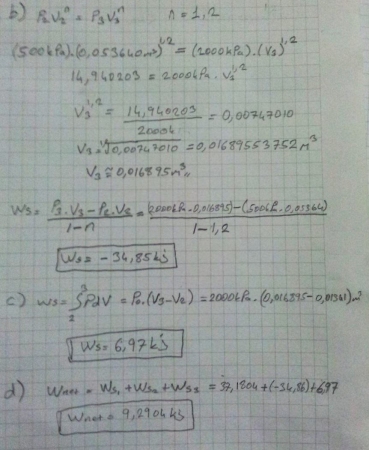 b) P₂V₂ⁿ = P₃V₃ⁿ n = 1,2
(500kPa).(0,053640m³)^1,2 = (2000kPa).(V₃)^1,2
14,940203 = 2000kPa.V₃^1,2
V₃^1,2 = 14,940203 / 2000k = 0,00747010
V₃ = ^1,2√0,00747010 = 0,01689553752 m³
V₃ ≅ 0,016895m³,,
Ws = P₃.V₃ - P₂.V₂ / 1-n = (2000kPa.0,016895) - (500k.0,05364) / 1-1,2
Ws = - 34,85kj
c) Ws = ∫₂³ PdV = P₀.(V₃-V₂) = 2000kPa.(0,016895-0,01341)m³
Ws = 6,97kj
d) Wnet = Ws₁ + Ws₂ + Ws₃ = 37,1804 + (-34,86) + 6,97
Wnet = 9,2904kj